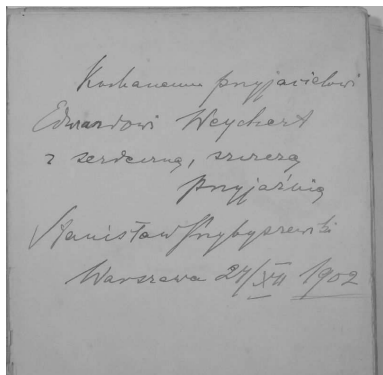 Kochanemu przyjacielowi
Edwardowi Weychert
z serdeczną, szczerą
przyjaźnią
Stanisław Przybyszewski
Warszawa 24/XII 1902